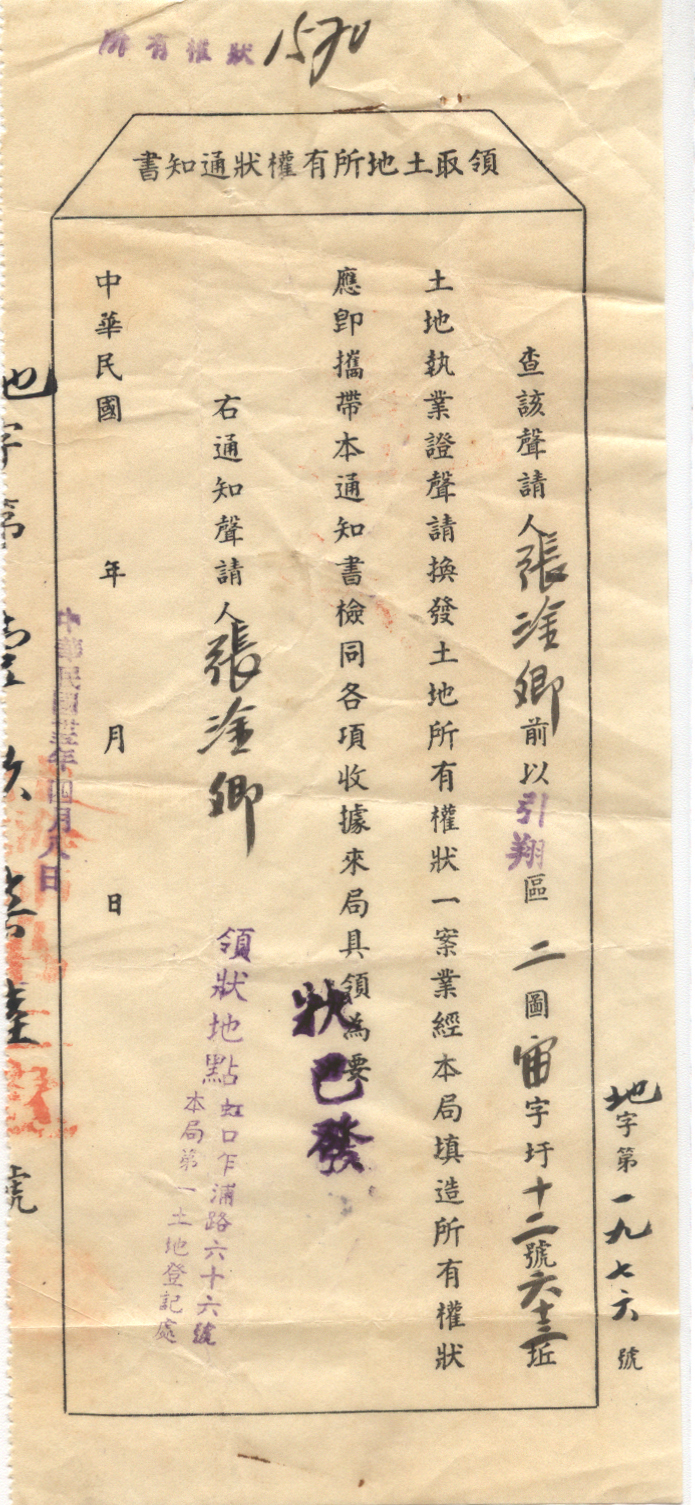 所有權狀 1570
領取土地所有權狀通知書
地字第一九七六號
查該聲請人張淦卿前以引翔區二圖宙字圩十二號六十三坵
土地執業證聲請換發土地所有權狀一案業經本局填造所有權狀
應卽攜帶本通知書檢同各項收據來局具領為要
狀已發
右通知聲請人張淦卿
領狀地點虹口乍浦路六十六號
本局第一土地登記處
中華民國 年 月 日
中華民國卅五年四月八日
地字第 號